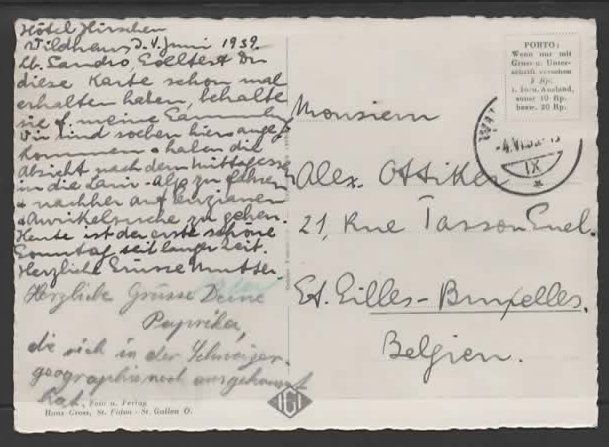 Hôtel Hirschen
Wildhaus, d. 4. Juni 1939.
Lb. Sandro Solltest Du
diese Karte schon mal
erhalten haben, behalte
sie f. meine Sammlung
Wir sind soeben hier ange-
kommen & haben die
Absicht nach dem Mittagessen
in die Lam-Alp zu fahren
& nachher auf Enzianen
& Aurikelsuche zu gehen.
Heute ist der erste schöne
Sonntag seit langer Zeit.
Herzliche Grüsse Mutter.
Herzliche Grüsse Deine
Paprika,
die sich in der Schweizer-
geographie noch ausgekannt
hat.
Foto u. Verlag
Hans Gross, St. Fiden - St. Gallen O.
PORTO:
Wenn nur mit
Gruss u. Unter-
schrift versehen
5 Rp.
i. In- u. Ausland,
sonst 10 Rp.
bezw. 20 Rp.
-4.VI.39.-
IX
Monsieur
Alex. Ottiker
21, Rue Tasson Snel.
St. Gilles-Bruxelles.
Belgien.